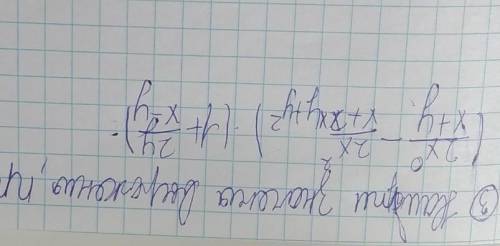 ③ Найти значения выражения, пр
(2x/(x+y) − 2x/(x+xxy+y²)) · (y + 2y/(x−y)) :